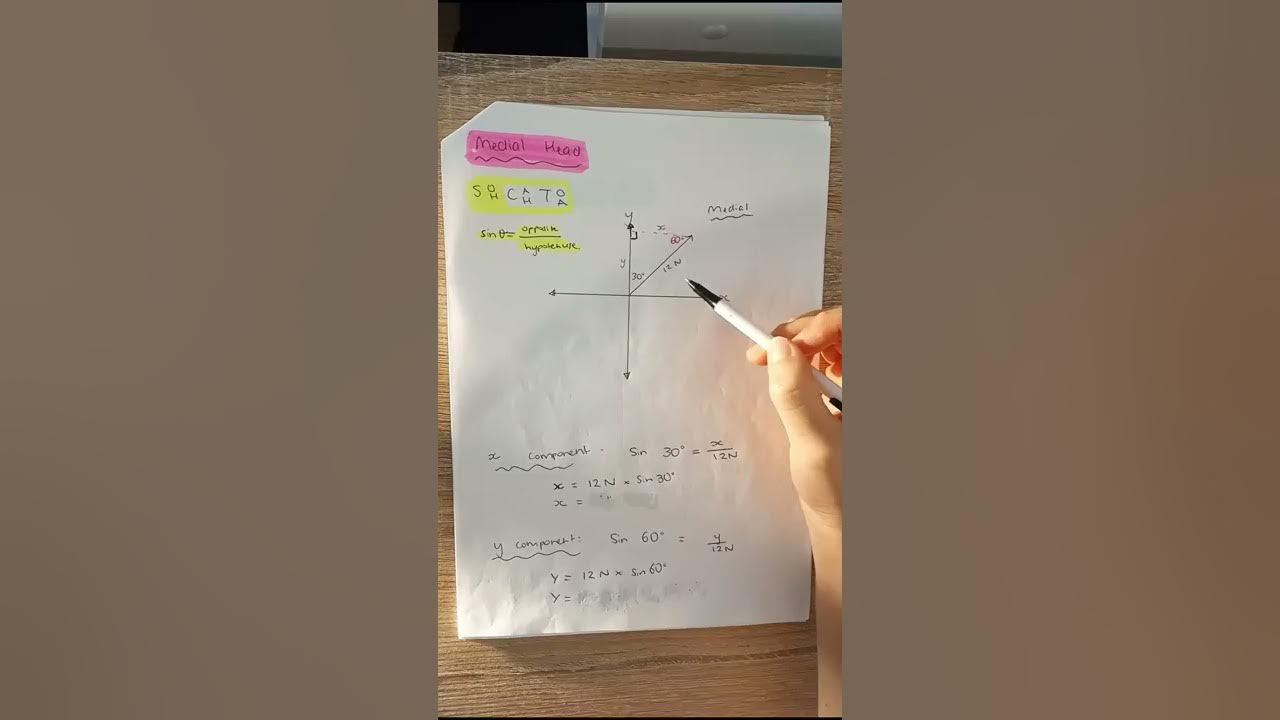 Medial Head
S O H C A H T O A
sin θ = opposite
hypotenuse
Medial
y
x
60°
y
12 N
30°
x
x component - Sin 30° = x
12N
x = 12 N × Sin 30°
x =
y component: Sin 60° = y
12N
Y = 12 N × Sin 60°
Y =